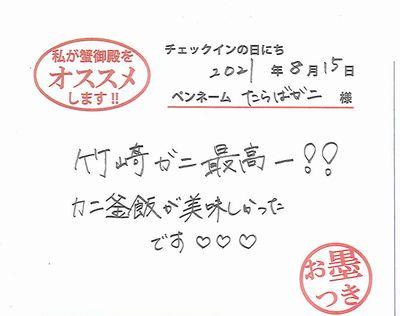 私が蟹御殿を
オススメ
します!!
チェックインの日にち
2021 年 8 月 15 日
ペンネーム たらばがニ 様
竹崎ガニ最高ー!!
カニ釜飯が美味しかった
です♡♡♡
お墨
つき